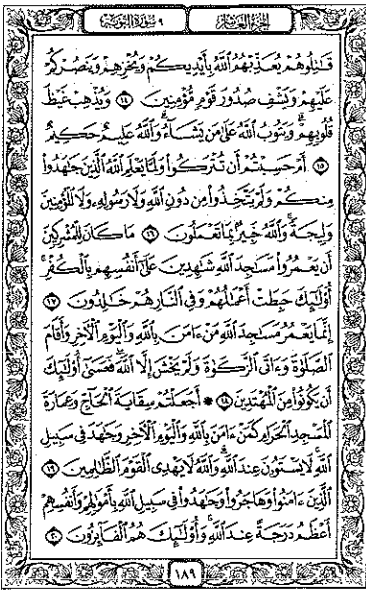 الجزء العاشر ٩ سورة التوبة
قَـٰتِلُوهُمْ يُعَذِّبْهُمُ ٱللَّهُ بِأَيْدِيكُمْ وَيُخْزِهِمْ وَيَنصُرْكُمْ
عَلَيْهِمْ وَيَشْفِ صُدُورَ قَوْمٍ مُّؤْمِنِينَ ١٤ وَيُذْهِبْ غَيْظَ
قُلُوبِهِمْ وَيَتُوبُ ٱللَّهُ عَلَىٰ مَن يَشَآءُ وَٱللَّهُ عَلِيمٌ حَكِيمٌ
١٥ أَمْ حَسِبْتُمْ أَن تُتْرَكُوا۟ وَلَمَّا يَعْلَمِ ٱللَّهُ ٱلَّذِينَ جَـٰهَدُوا۟
مِنكُمْ وَلَمْ يَتَّخِذُوا۟ مِن دُونِ ٱللَّهِ وَلَا رَسُولِهِۦ وَلَا ٱلْمُؤْمِنِينَ
وَلِيجَةً وَٱللَّهُ خَبِيرٌۢ بِمَا تَعْمَلُونَ ١٦ مَا كَانَ لِلْمُشْرِكِينَ
أَن يَعْمُرُوا۟ مَسَـٰجِدَ ٱللَّهِ شَـٰهِدِينَ عَلَىٰٓ أَنفُسِهِم بِٱلْكُفْرِ
أُو۟لَـٰٓئِكَ حَبِطَتْ أَعْمَـٰلُهُمْ وَفِى ٱلنَّارِ هُمْ خَـٰلِدُونَ ١٧
إِنَّمَا يَعْمُرُ مَسَـٰجِدَ ٱللَّهِ مَنْ ءَامَنَ بِٱللَّهِ وَٱلْيَوْمِ ٱلْـَٔاخِرِ وَأَقَامَ
ٱلصَّلَوٰةَ وَءَاتَى ٱلزَّكَوٰةَ وَلَمْ يَخْشَ إِلَّا ٱللَّهَ فَعَسَىٰٓ أُو۟لَـٰٓئِكَ
أَن يَكُونُوا۟ مِنَ ٱلْمُهْتَدِينَ ١٨ * أَجَعَلْتُمْ سِقَايَةَ ٱلْحَآجِّ وَعِمَارَةَ
ٱلْمَسْجِدِ ٱلْحَرَامِ كَمَنْ ءَامَنَ بِٱللَّهِ وَٱلْيَوْمِ ٱلْـَٔاخِرِ وَجَـٰهَدَ فِى سَبِيلِ
ٱللَّهِ لَا يَسْتَوُۥنَ عِندَ ٱللَّهِ وَٱللَّهُ لَا يَهْدِى ٱلْقَوْمَ ٱلظَّـٰلِمِينَ ١٩
ٱلَّذِينَ ءَامَنُوا۟ وَهَاجَرُوا۟ وَجَـٰهَدُوا۟ فِى سَبِيلِ ٱللَّهِ بِأَمْوَٰلِهِمْ وَأَنفُسِهِمْ
أَعْظَمُ دَرَجَةً عِندَ ٱللَّهِ وَأُو۟لَـٰٓئِكَ هُمُ ٱلْفَآئِزُونَ ٢٠
١٨٩